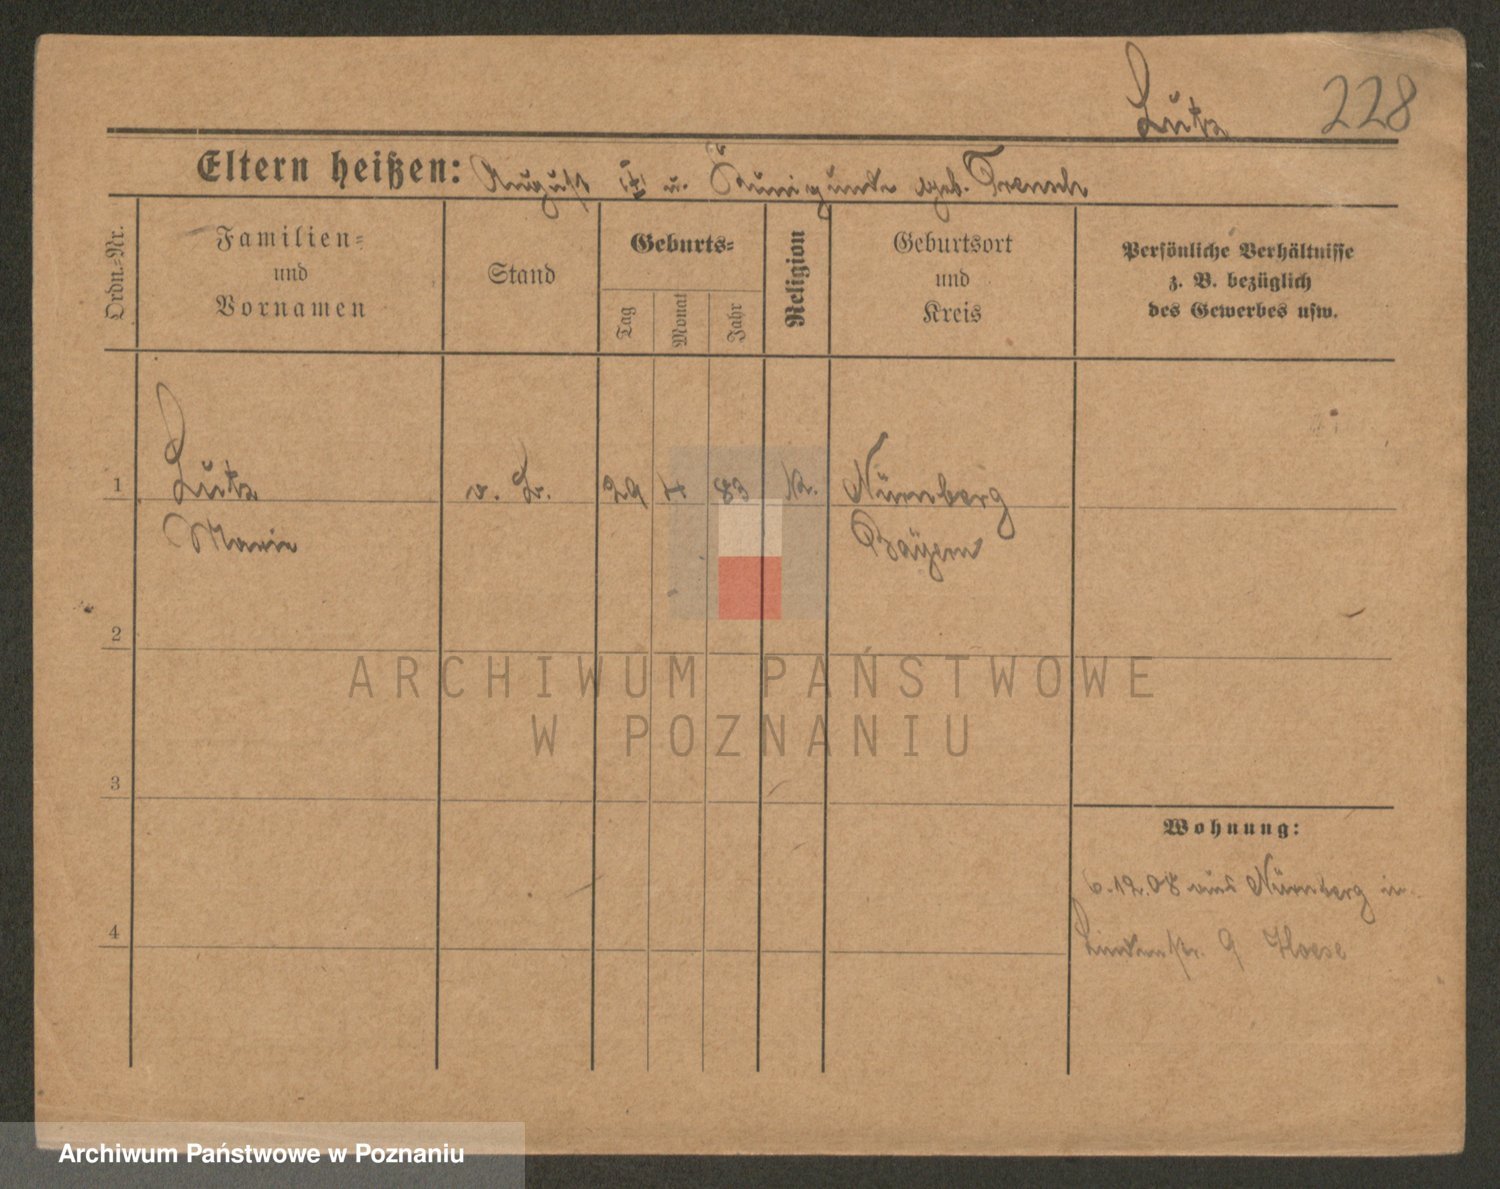 Lutz 228
Eltern heißen: August u. Kunigunde geb.
Ordn.-Nr.
Familien-
und
Vornamen
Stand
Geburts-
Tag
Monat
Jahr
Religion
Geburtsort
und
Kreis
Persönliche Verhältnisse
z. B. bezüglich
des Gewerbes usw.
1 Lutz o. B. 29 4 83 K. Nürnberg
Marie Bayern
2
ARCHIWUM PAŃSTWOWE
W POZNANIU
3
Wohnung:
6.12.08 aus Nürnberg in
4 Lindenstr. 9 Hoese
Archiwum Państwowe w Poznaniu